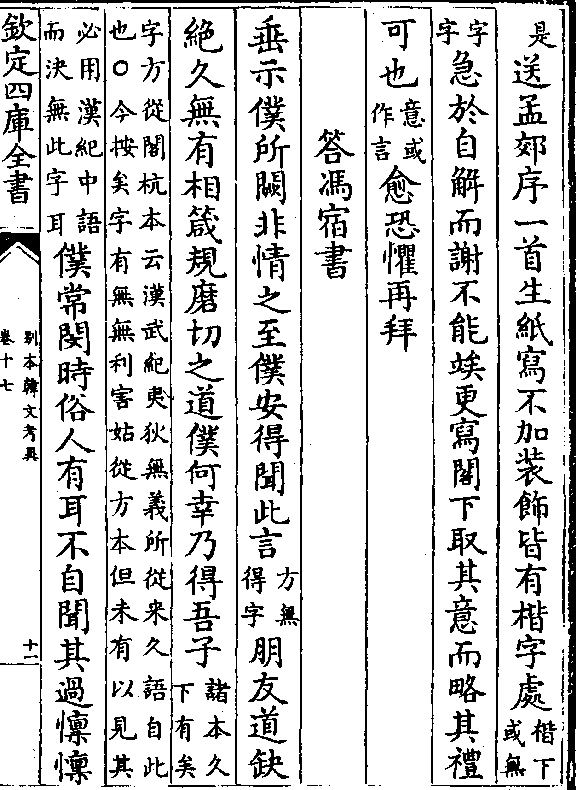 是送孟郊序一首生紙寫不加装飾皆有楷字處楷下或無
字字急於自解而謝不能竢更寫閣下取其意而略其禮
可也意或作言愈恐懼再拜
答馮宿書
垂示僕所闕非情之至僕安得聞此言方無得字朋友道缺
絶久無有相箴規磨切之道僕何幸乃得吾子諸本久下有矣
字方從閣杭本云漢武紀夷狄無義所從来久語自此
也○今按矣字有無無利害姑從方本但未有以見其
必用漢紀中語而決無此字耳僕常閔時俗人有耳不自聞其過懍懍
欽定四庫全書
別本韓文考異
卷十七
十一